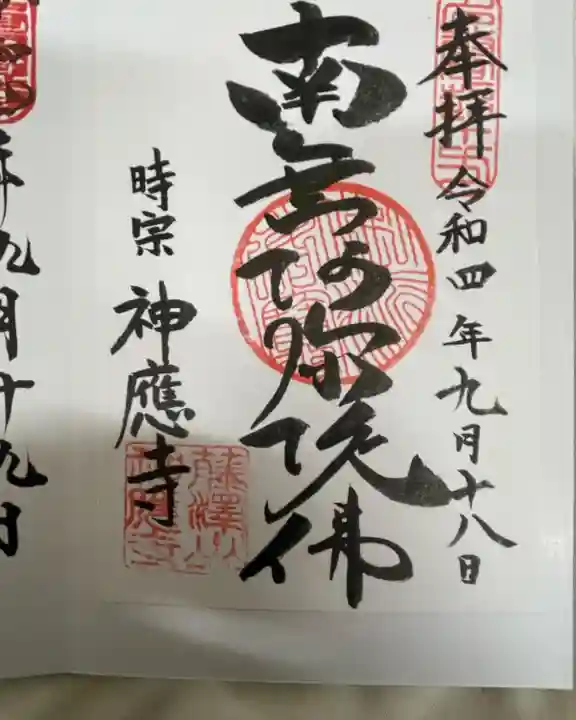 奉拝
令和四年九月十八日
南無阿弥陀佛
時宗
神應寺
藤澤山
神應寺
年九月十九日